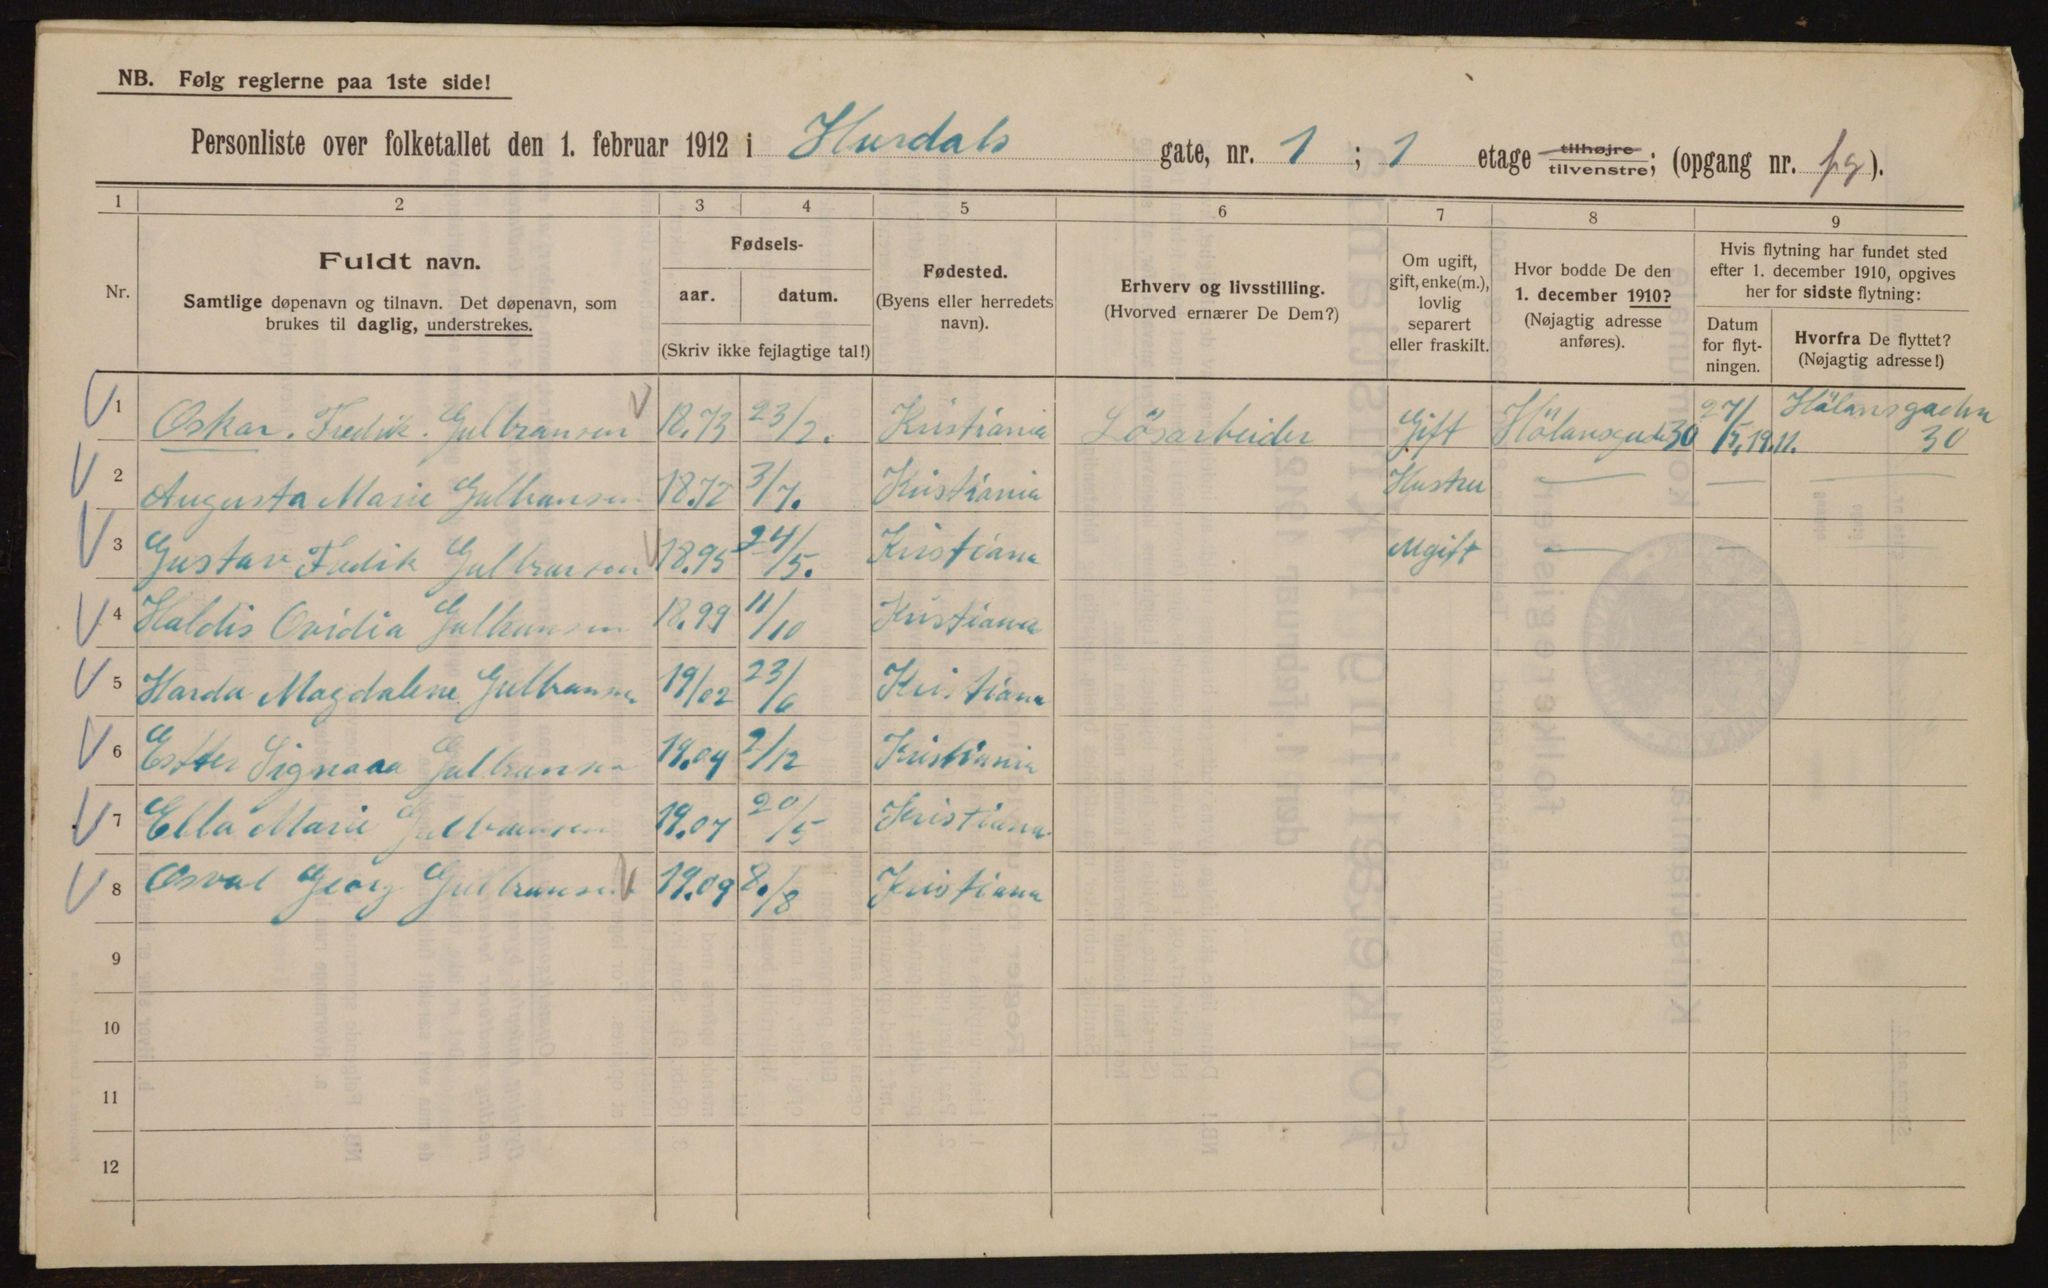 NB. Følg reglerne paa 1ste side!
Personliste over folketallet den 1. februar 1912 i Hurdals gate, nr. 1 ; 1 etage tilhøjre tilvenstre; (opgang nr. pg ).
1 2 3 4 5 6 7 8 9
Nr.
Fuldt navn.
Samtlige døpenavn og tilnavn. Det døpenavn, som
brukes til daglig, understrekes.
Fødsels-
aar. datum.
(Skriv ikke fejlagtige tal!)
Fødested.
(Byens eller herredets
navn).
Erhverv og livsstilling.
(Hvorved ernærer De Dem?)
Om ugift,
gift, enke(m.),
lovlig
separert
eller fraskilt.
Hvor bodde De den
1. december 1910?
(Nøjagtig adresse
anføres).
Hvis flytning har fundet sted
efter 1. december 1910, opgives
her for sidste flytning:
Datum
for flyt-
ningen.
Hvorfra De flyttet?
(Nøjagtig adresse!)
1 Oskar. Fredik. Gulbransen 18.73 23/2. Kristiania Lösarbeider Gift Hölansgade 30 27/5. 19.11. Hölansgaden 30
2 Augusta Marie Gulbransen 18.72 3/7. Kristiania Hustru — — —
3 Gustav Fredik Gulbransen 18.95 24/5. Kristiana Ugift — — —
4 Haldis Ovidia Gulbransen 18.99 11/10 Kristiana
5 Harda Magdalene Gulbransen 19/02 23/6 Kristiana
6 Ester Gulbransen 19.04 2/12 Kristiania
7 Ella Marie Gulbransen 19.07 20/5 Kristiana
8 Osval Georg Gulbransen 19.09 8./8 Kristiana
9
10
11
12